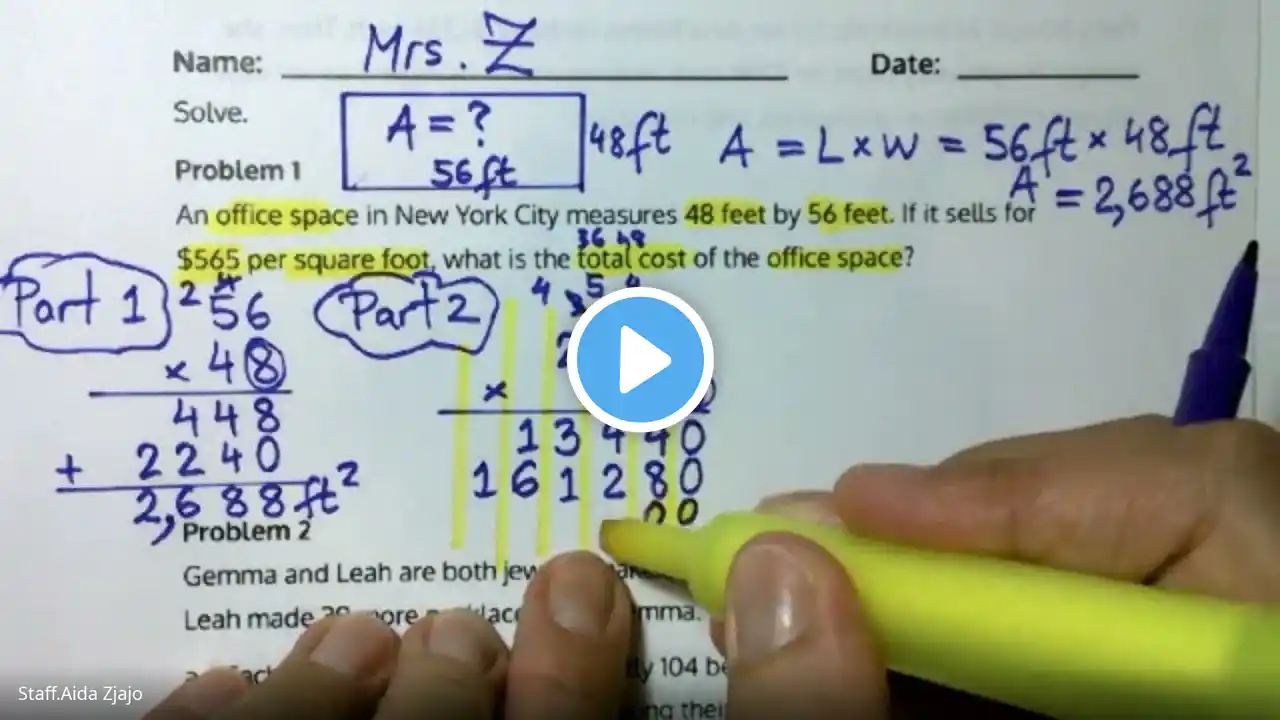 Name: Mrs. Z Date:
Solve.
A = ?
56ft
48ft
A = L × W = 56ft × 48ft
A = 2,688ft²
Problem 1
An office space in New York City measures 48 feet by 56 feet. If it sells for
36 48
$565 per square foot, what is the total cost of the office space?
Part 1
2 4
56
× 48
448
+ 2240
2,688ft²
Part 2
4 5
2
×
13440
161280
00
Problem 2
Gemma and Leah are both
Leah made more
104
Staff.Aida Zjajo